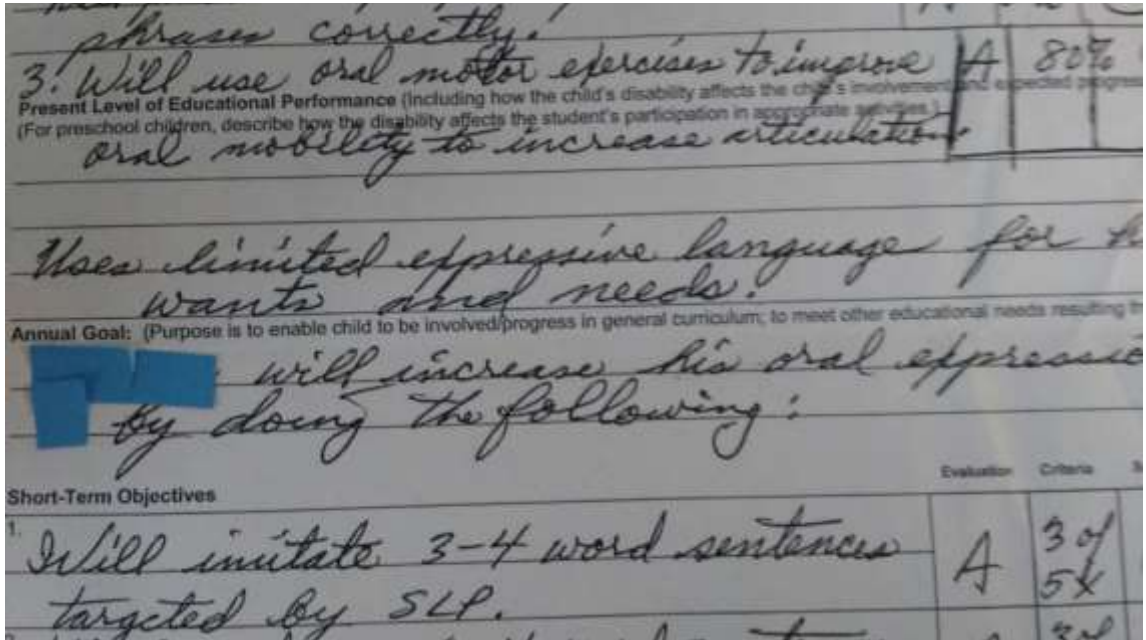 phrases correctly.
3. Will use oral motor exercises to improve A 80%
Present Level of Educational Performance (Including how the child's disability affects the child's involvement and expected progress
(For preschool children, describe how the disability affects the student's participation in appropriate activities.)
oral mobility to increase articulation.
Uses limited expressive language for
wants and needs.
Annual Goal: (Purpose is to enable child to be involved/progress in general curriculum, to meet other educational needs resulting
will increase his oral
by doing the following:
Evaluation Criteria
Short-Term Objectives
1. Will imitate 3-4 word sentences A 3 of
targeted by SLP. 5x